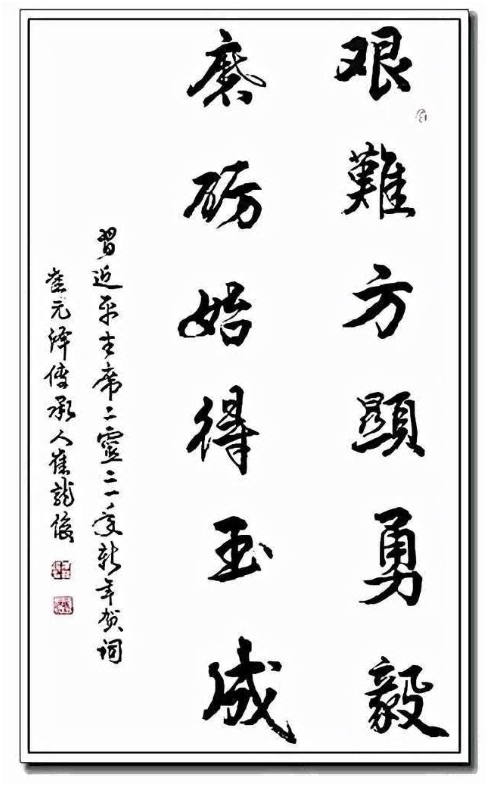 艰難方顯勇毅
磨砺始得玉成
習近平主席二零二一年新年贺词
崔元泽傳承人崔龍俊